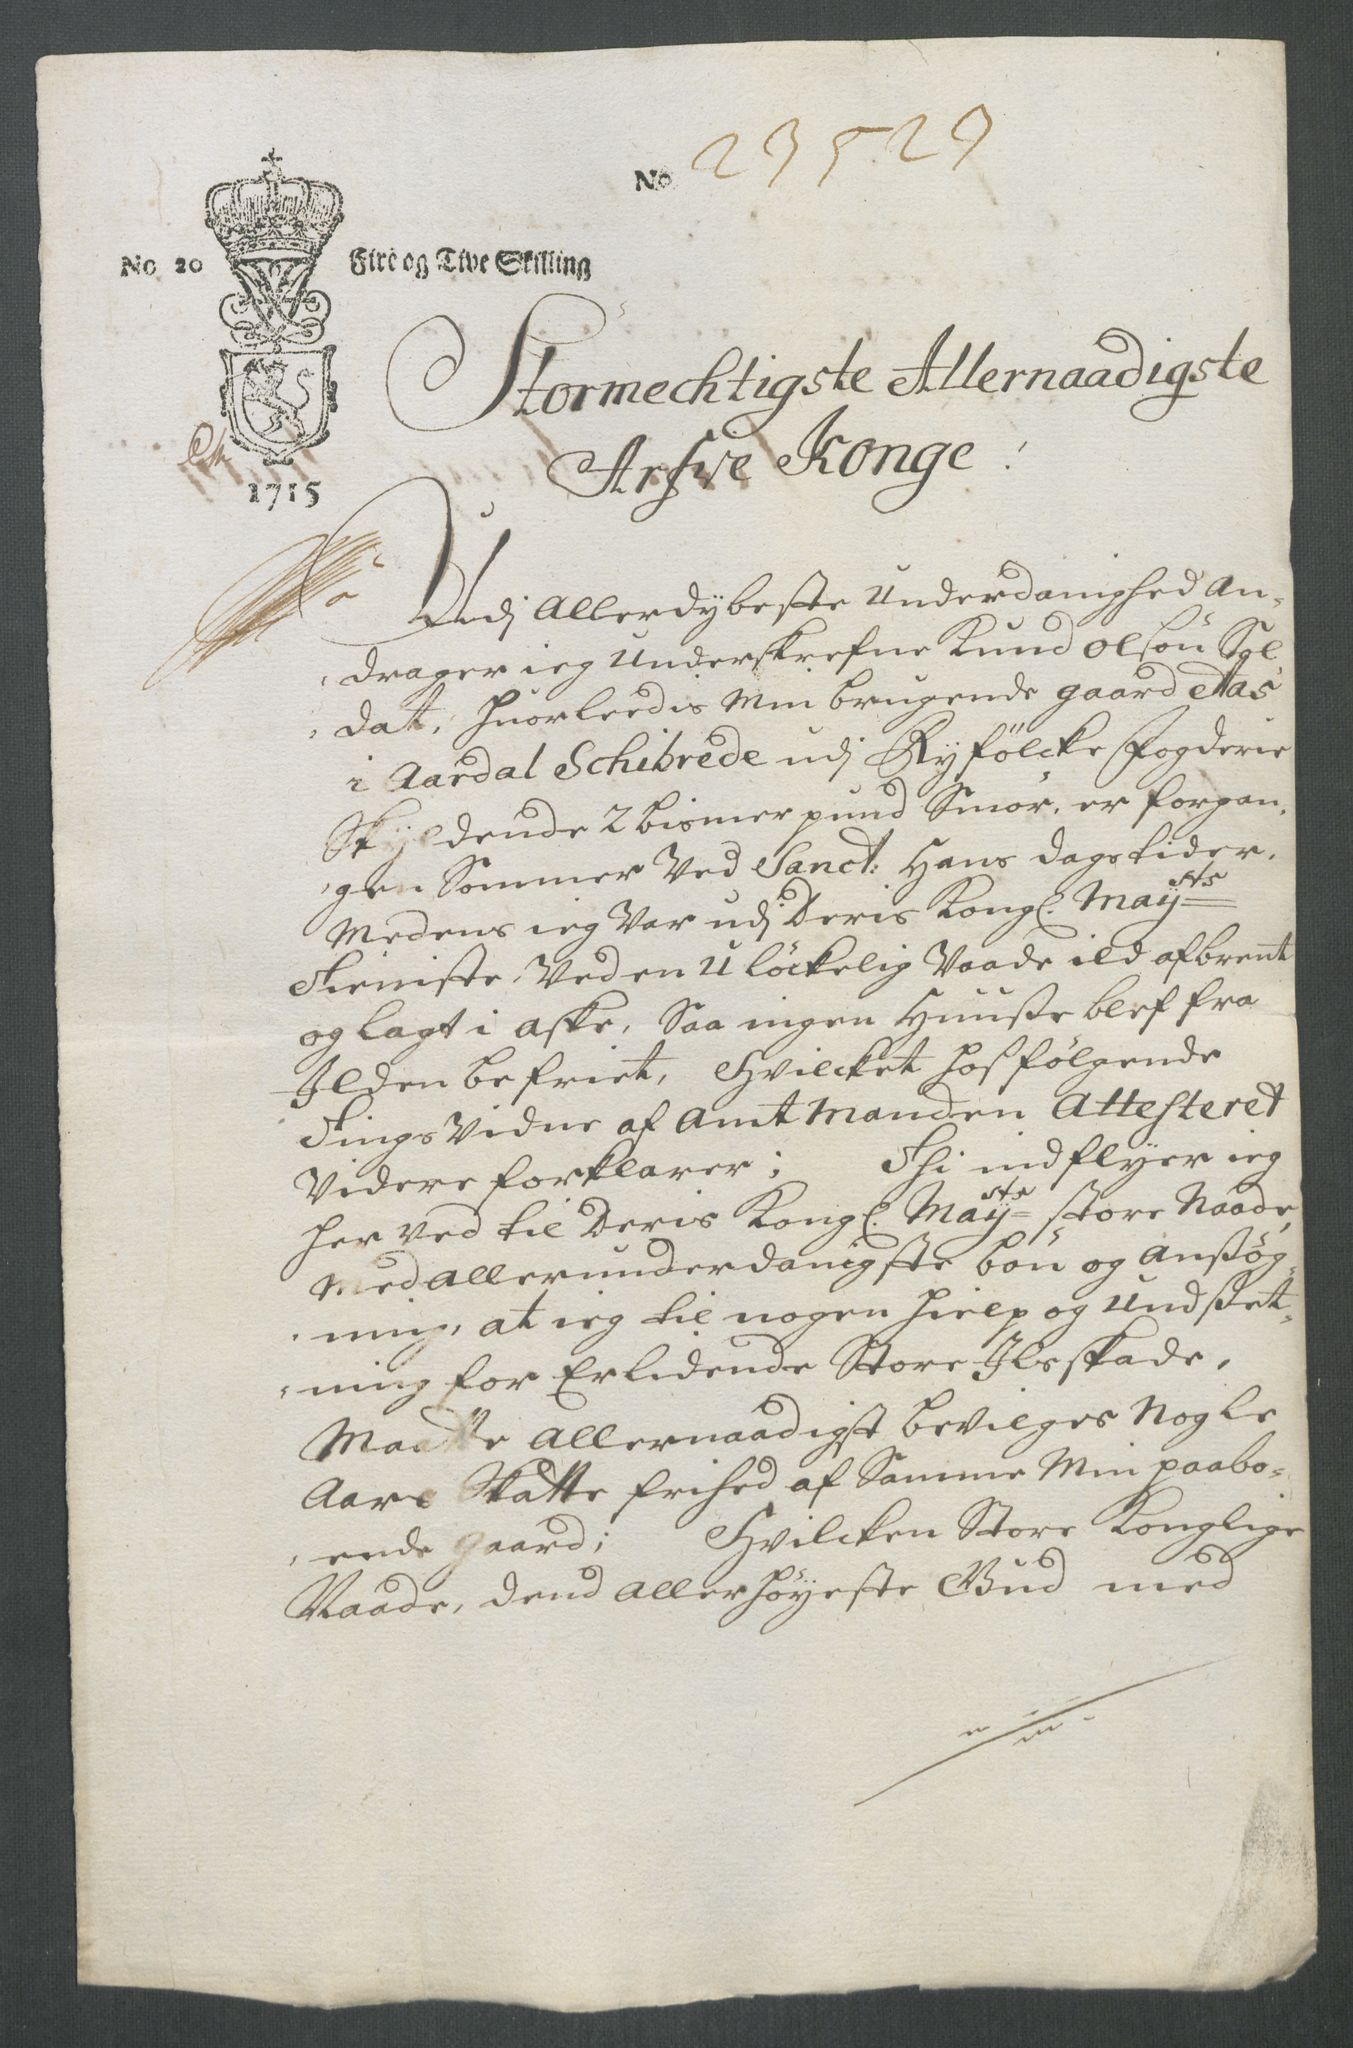 No 23529
No 20 Fire og Tive Skilling
1715
Stormechtigste Allernaadigste
Arfve Konge!
Udj Allerdybeste Underdanighed An-
drager ieg Underskrefne Knud Olsön Sol-
dat, huorleedis Min brugende gaard Aas
i Aardal Schibrede udj Ryfölcke Fogderie
Skyldende 2 bismer pund Smör, er forgan-
gen Sommer Ved Sanct: Hans dags tider,
Medens ieg Var udj Deris Kongl. Mayts
Tieniste, Ved en Ulöckelig Vaade ild afbrent
og lagt i aske, Saa ingen Huuse blef fra
Ilden befriet, Hvilcket hosfölgende
Tings Vidne af Amt Manden Attesteret
Videre forklarer; Thi indflyer ieg
her ved til Deris Kongl. Mayts store Naade,
Med allerunderdanigste bön og Ansög-
ning, at ieg til nogen hielp og Undset-
ning for Erlidende Store Ilsskade,
Maatte Allernaadigst bevilges Nogle
Aars Skatte frihed af Samme Min paabo-
ende gaard; Hvilcken Store Konglige
Naade, dend allerhöyeste Gud med